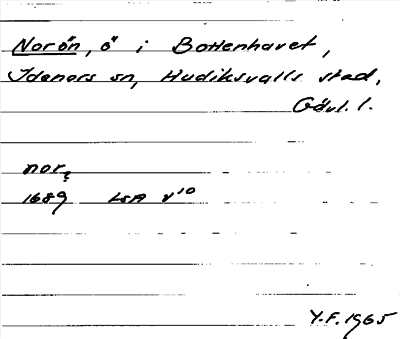 Norön, ö i Bottenhavet,
Idenors sn, Hudiksvalls stad,
Gävl. l.
nor,
1689 LSA V¹⁰
Y.F. 1965